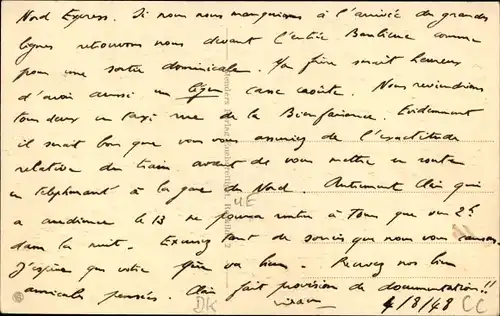 Nord Express. Si nous nous manquions à l'arrivée des grandes
lignes retrouvons nous devant l'entrée Banlieue comme
pour une sortie dominicale. Ma frère serait heureux
d'avoir aussi un léger casse croûte. Nous reviendrions
tous deux en taxi rue de la Bienfaisance. Evidemment
il serait bon que vous vous assuriez de l'exactitude
relative du train avant de vous mettre en route
en téléphonant à la gare du Nord. Autrement Clair qui
a audience le 13 ne pourra rentrer à Tours que vers 2h
dans la nuit. Excusez tant de soucis que nous vous causons.
J'espère que votre père va bien. Recevez nos bien
amicales pensées. Clair fait provision de documentation!!
4/8/48
UE
DK
CC